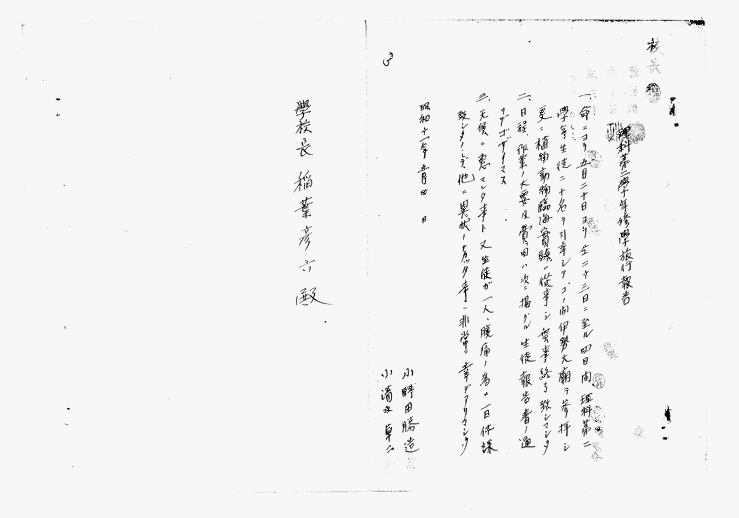 校長
理科第二學年修學旅行報告
一、命ニヨリ五月二十日ヨリ仝二十三日ニ至ル四日間理科第二
學年生徒二十名ヲ引率シ
伊勢大廟ヲ參拝シ
更ニ植物動物臨海實驗ニ從事シ無事終了致シマシタ
二、日程、作業ノ大要及費用ハ次ニ掲グル生徒報告書ノ通
リデゴザイマス
三、天候ニ惠マレタ事ト又生徒ガ一人、腹痛ノ爲メ一日休課
致シタ
他ニ異状ノナカッタ事ハ非常ニ幸デアリマシタ
昭和十一年五月 日
小野田勝造
小清水卓二
學校長 稲葉彦六殿